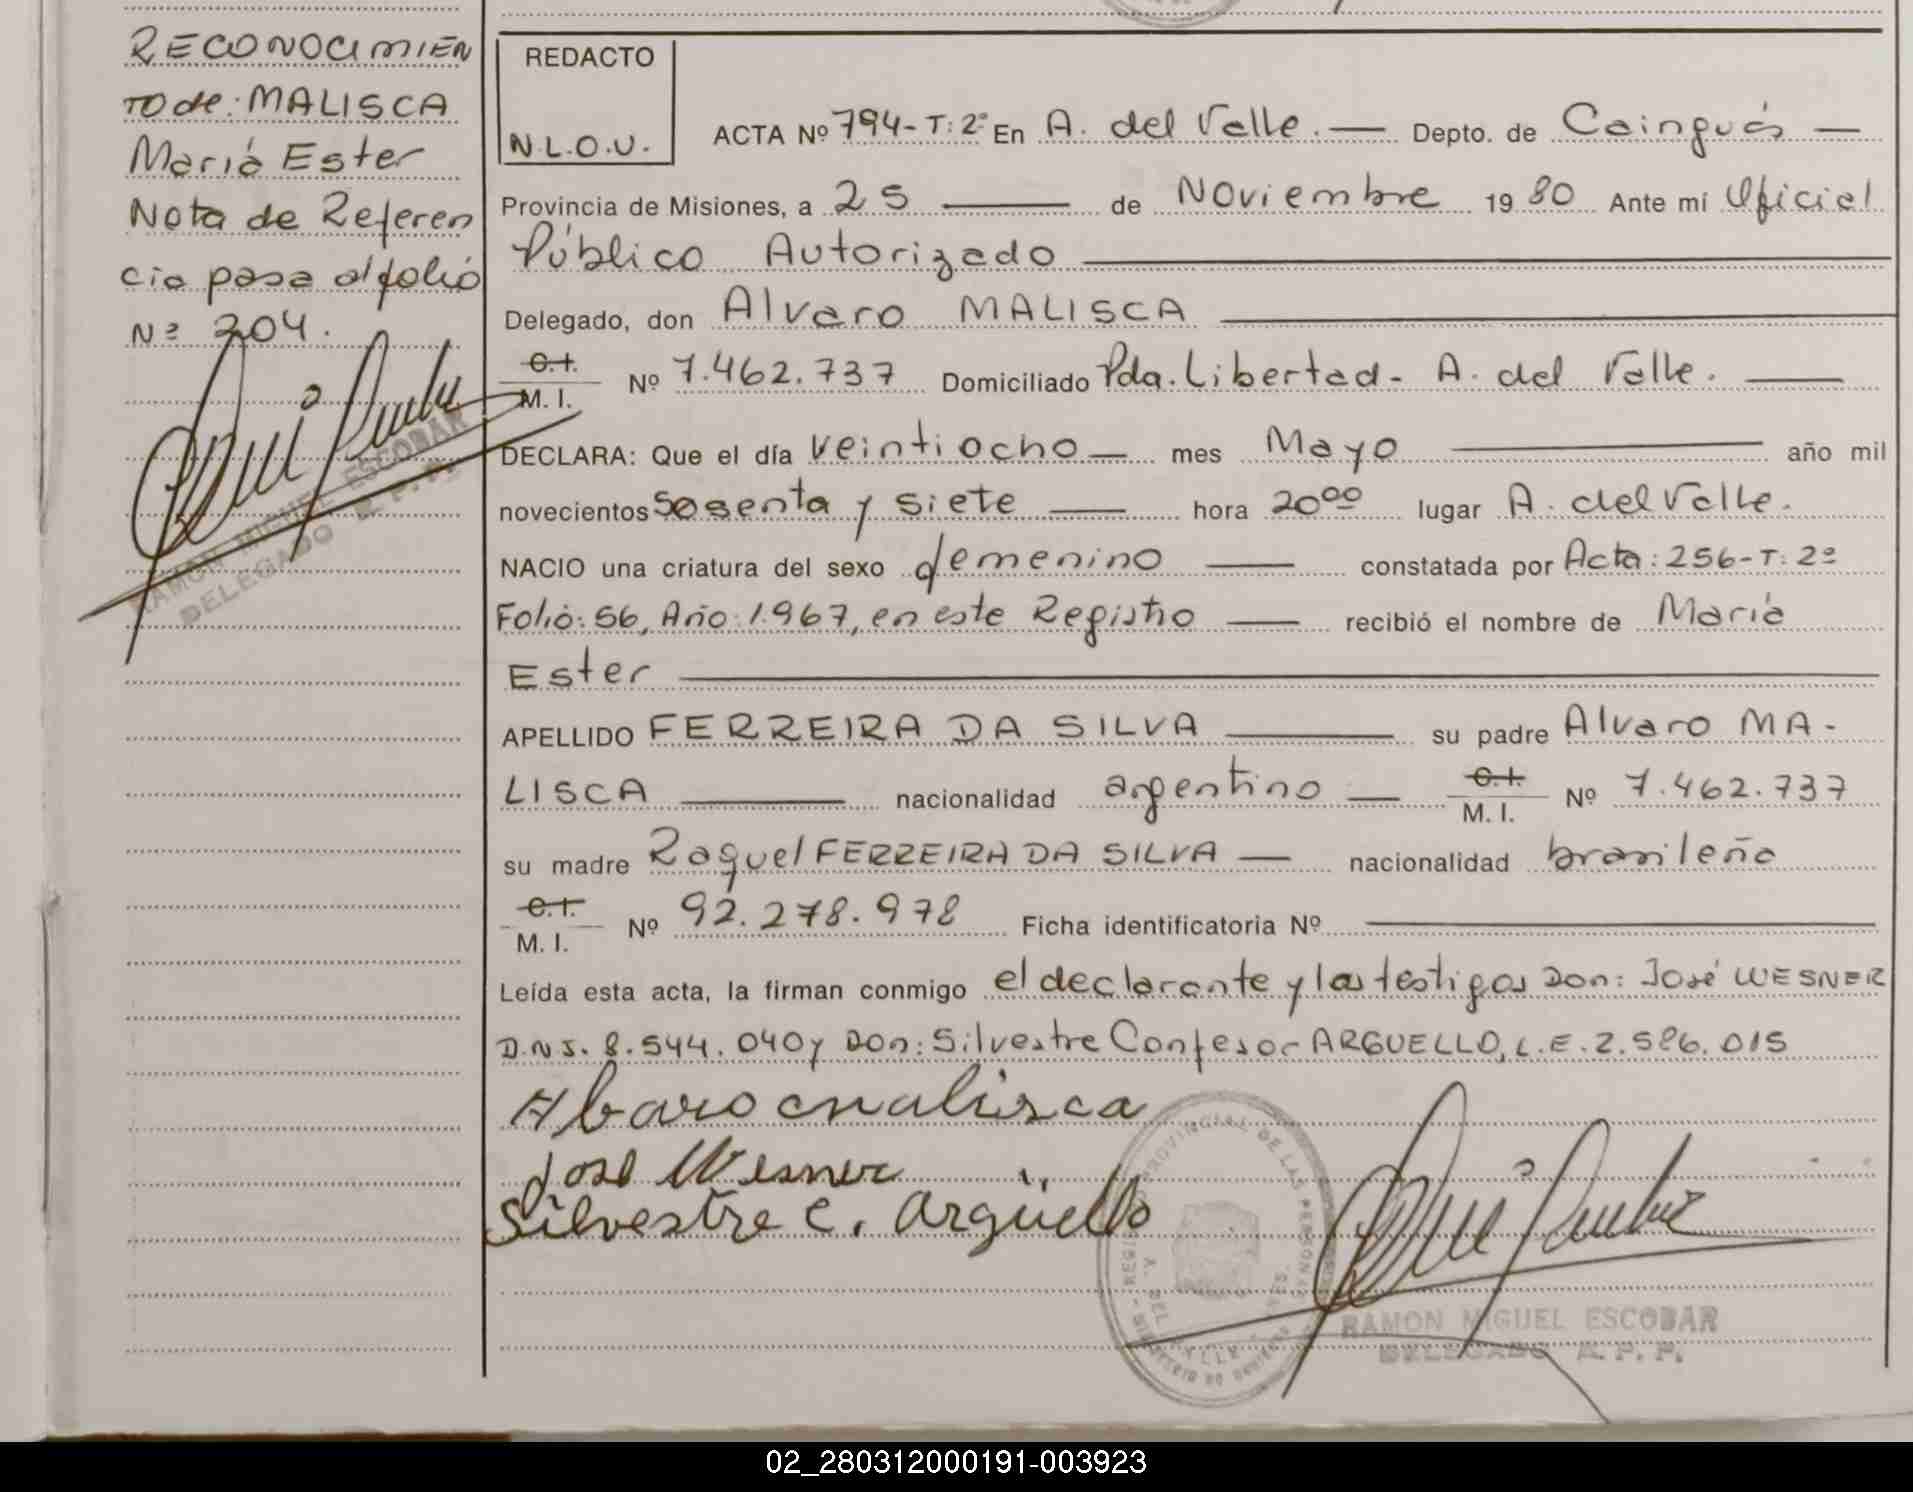 RECONOCIMIEN
TO de: MALISCA
María Ester
Nota de Referen
cia pasa al folio
Nº 204.
RAMON MIGUEL ESCOBAR
DELEGADO R. P. P.
REDACTO
N.L.O.U.
ACTA Nº 794-T:2º En A. del Valle. — Depto. de Cainguás —
Provincia de Misiones, a 25 — de Noviembre 1980 Ante mí Oficial
Público Autorizado
Delegado, don Alvaro MALISCA
C.I. M. I. Nº 7.462.737 Domiciliado Pda. Libertad - A. del Valle. —
DECLARA: Que el día veintiocho — mes Mayo — año mil
novecientos sesenta y siete — hora 20⁰⁰ lugar A. del Valle.
NACIO una criatura del sexo femenino — constatada por Acta: 256-T: 2º
Folio: 56, Año: 1.967, en este Registro — recibió el nombre de María
Ester
APELLIDO FERREIRA DA SILVA — su padre Alvaro MA-
LISCA — nacionalidad argentino — C.I. M. I. Nº 7.462.737
su madre Raquel FERREIRA DA SILVA — nacionalidad brasileña
C.I. M. I. Nº 92.278.978 Ficha identificatoria Nº —
Leída esta acta, la firman conmigo el declarante y los testigos Don: José WESNER
D.N.I. 8.544.040 y Don: Silvestre Confesor ARGUELLO, L.E. 2.586.015
Albaro malisca
José Wesner
Silvestre C. Argüello
REGISTRO PROVINCIAL DE LAS PERSONAS
A. DEL VALLE
RAMON MIGUEL ESCOBAR
DELEGADO R. P. P.
02_280312000191-003923